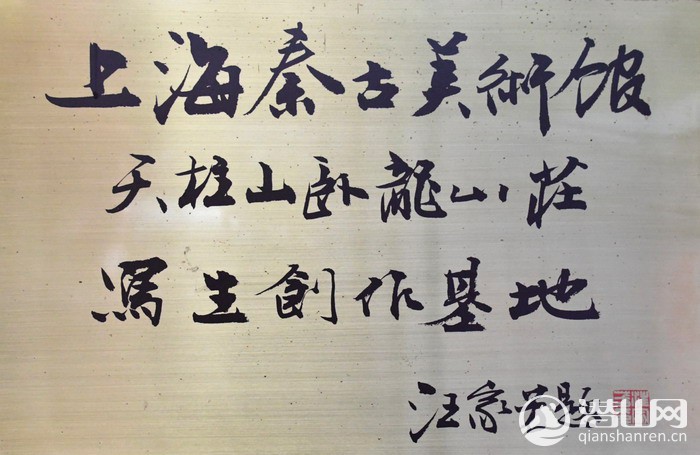 上海秦古美術館
天柱山卧龍山莊
寫生創作基地
汪家芳題
潜山网
qianshanren.cn